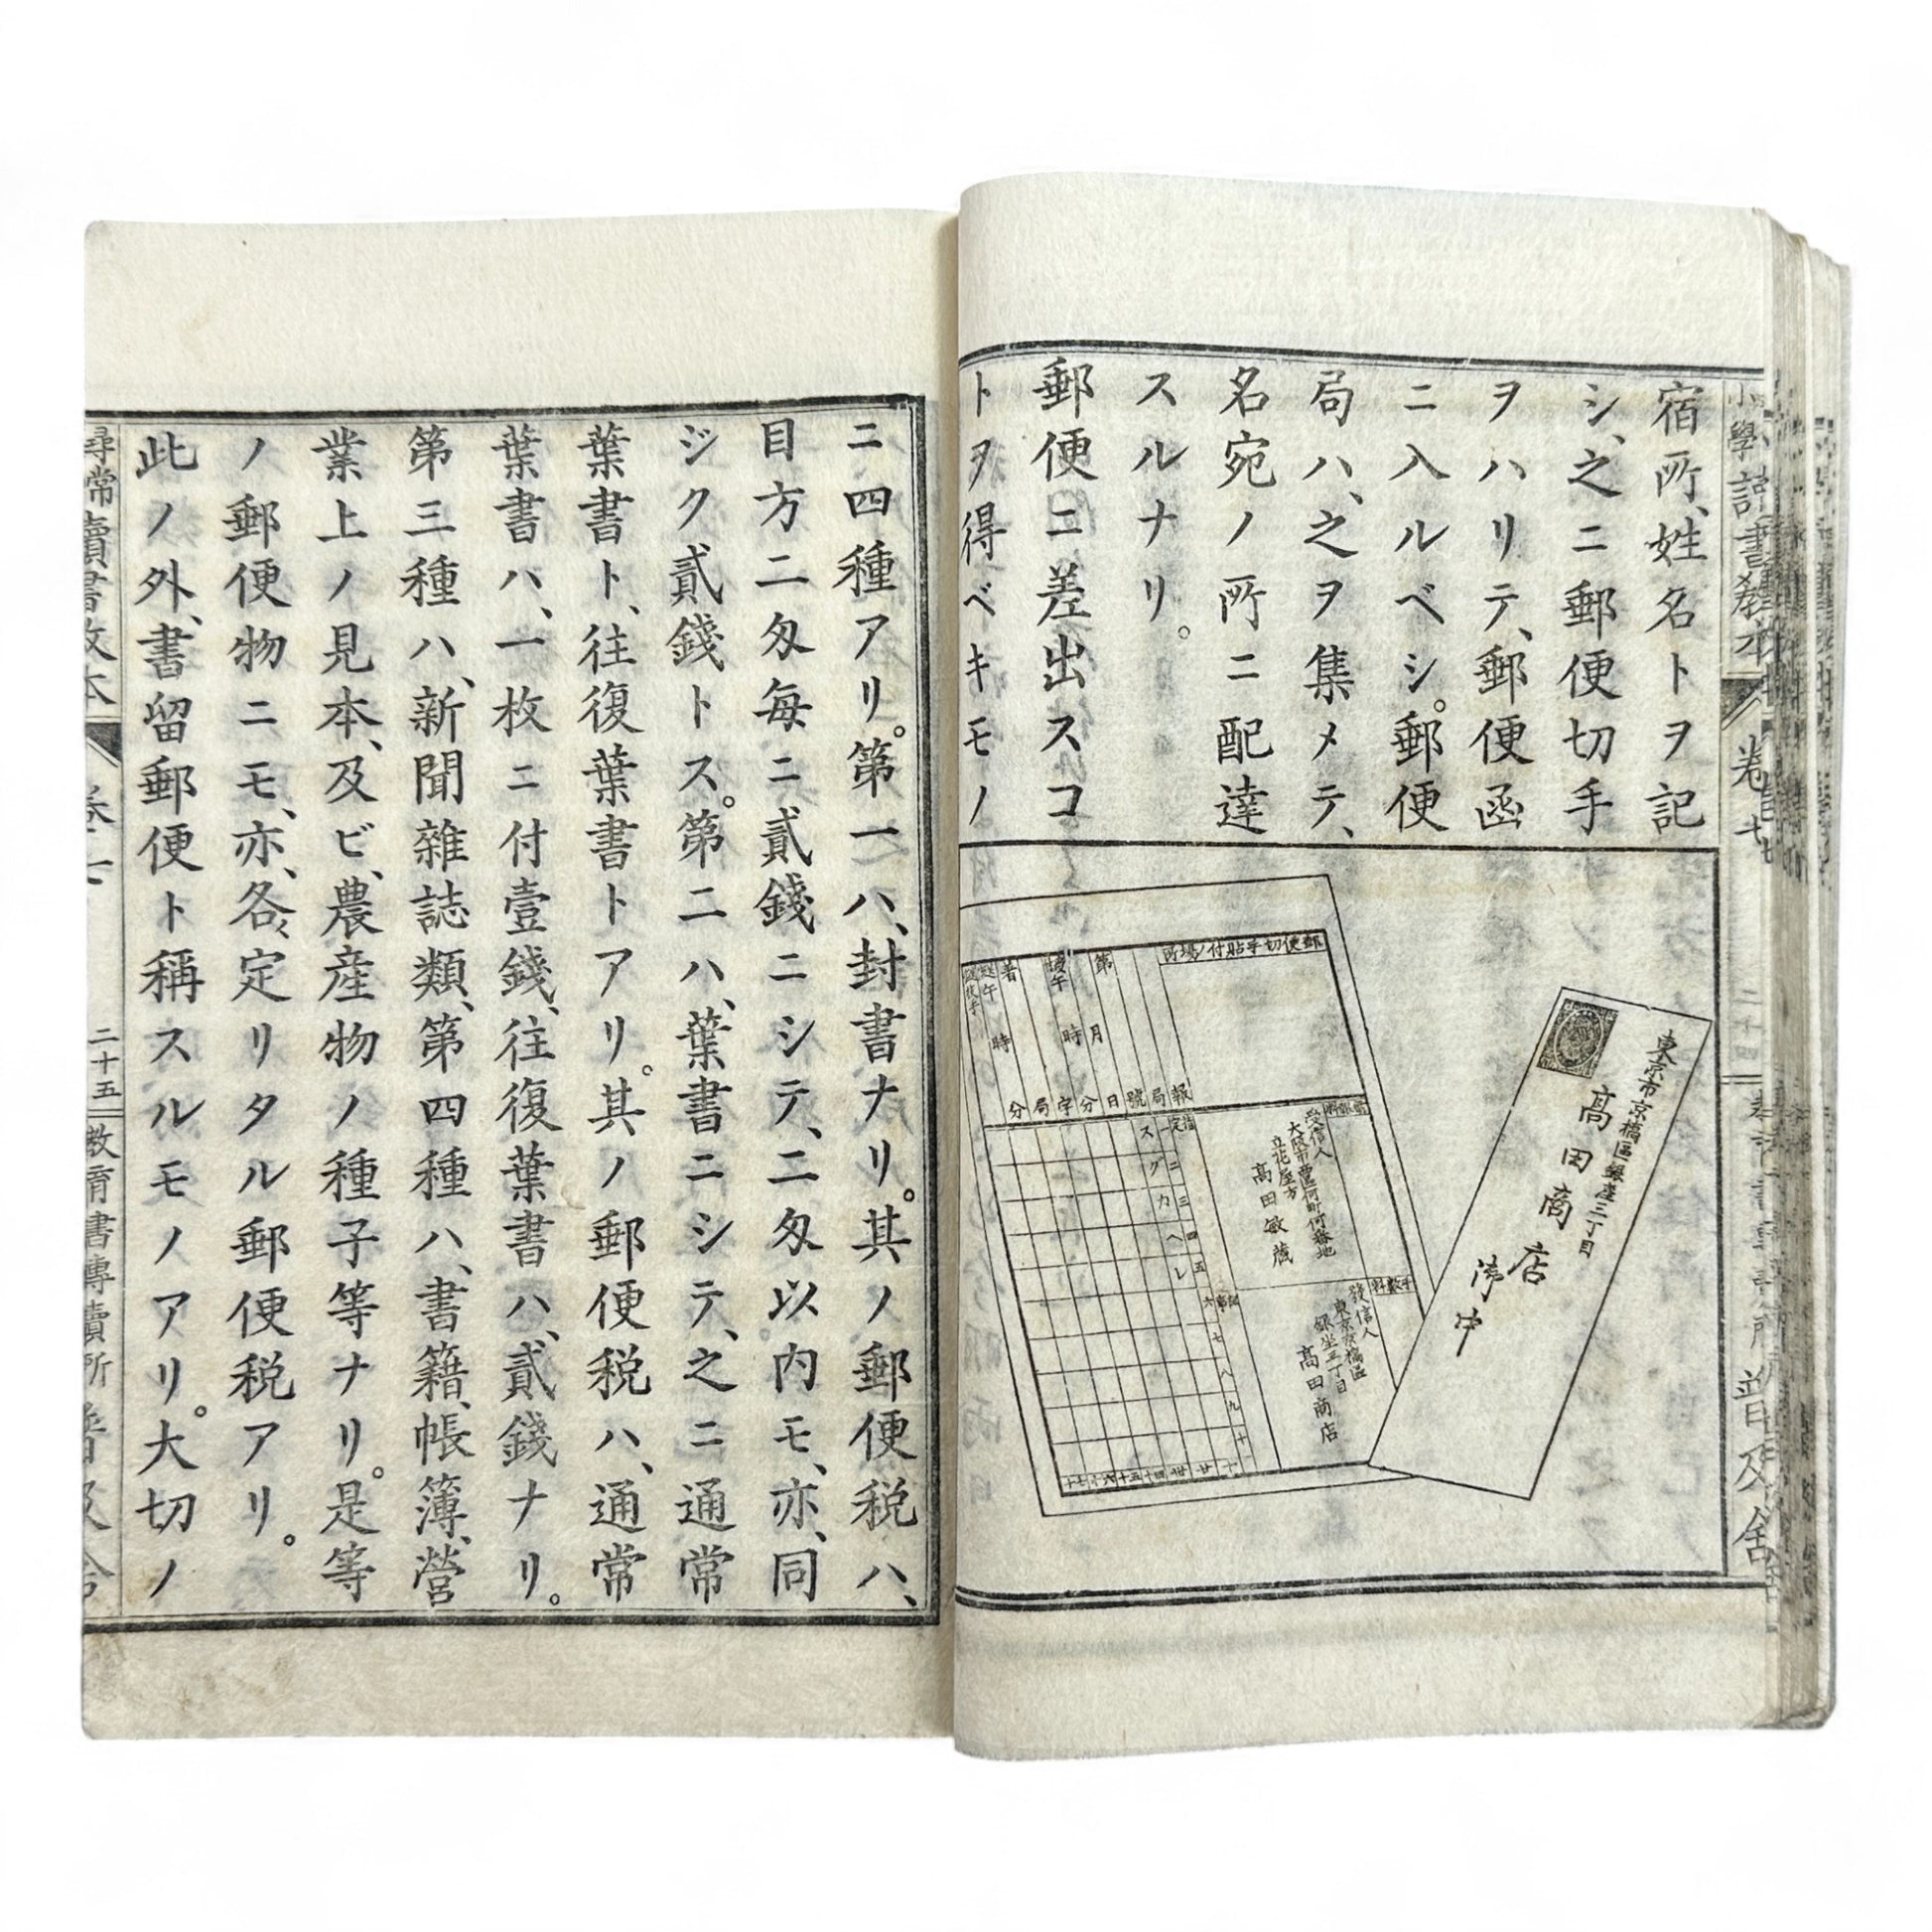 宿所、姓名トヲ記
シ、之ニ郵便切手
ヲハリテ、郵便函
ニ入ルベシ。郵便
局ハ、之ヲ集メテ、
名宛ノ所ニ配達
スルナリ。
郵便ニ差出スコ
トヲ得ベキモノ
東京市京橋區銀座三丁目
高田商店
御中
郵便切手貼付ノ場所
報
局
號
第
月
日
午後
時
分
字
局
着
午
時
分
受信人
大阪市西區何町何番地
立花屋方
高田敏藏
發信人
東京京橋區
銀坐三丁目
高田商店
手數料
指定
一二三四五六七八九十
スグカヘレ
卷七
二十四
普及舍
ニ四種アリ。第一ハ、封書ナリ。其ノ郵便税ハ、
目方二匁毎ニ貳錢ニシテ、二匁以内モ、亦、同
ジク貳錢トス。第二ハ、葉書ニシテ、之ニ通常
葉書ト、往復葉書トアリ。其ノ郵便税ハ、通常
葉書ハ、一枚ニ付壹錢、往復葉書ハ、貳錢ナリ。
第三種ハ、新聞雜誌類、第四種ハ、書籍、帳簿、營
業上ノ見本、及ビ、農産物ノ種子等ナリ。是等
ノ郵便物ニモ、亦、各々定リタル郵便税アリ。
此ノ外、書留郵便ト稱スルモノアリ。大切ノ
尋常讀書教本
二十五